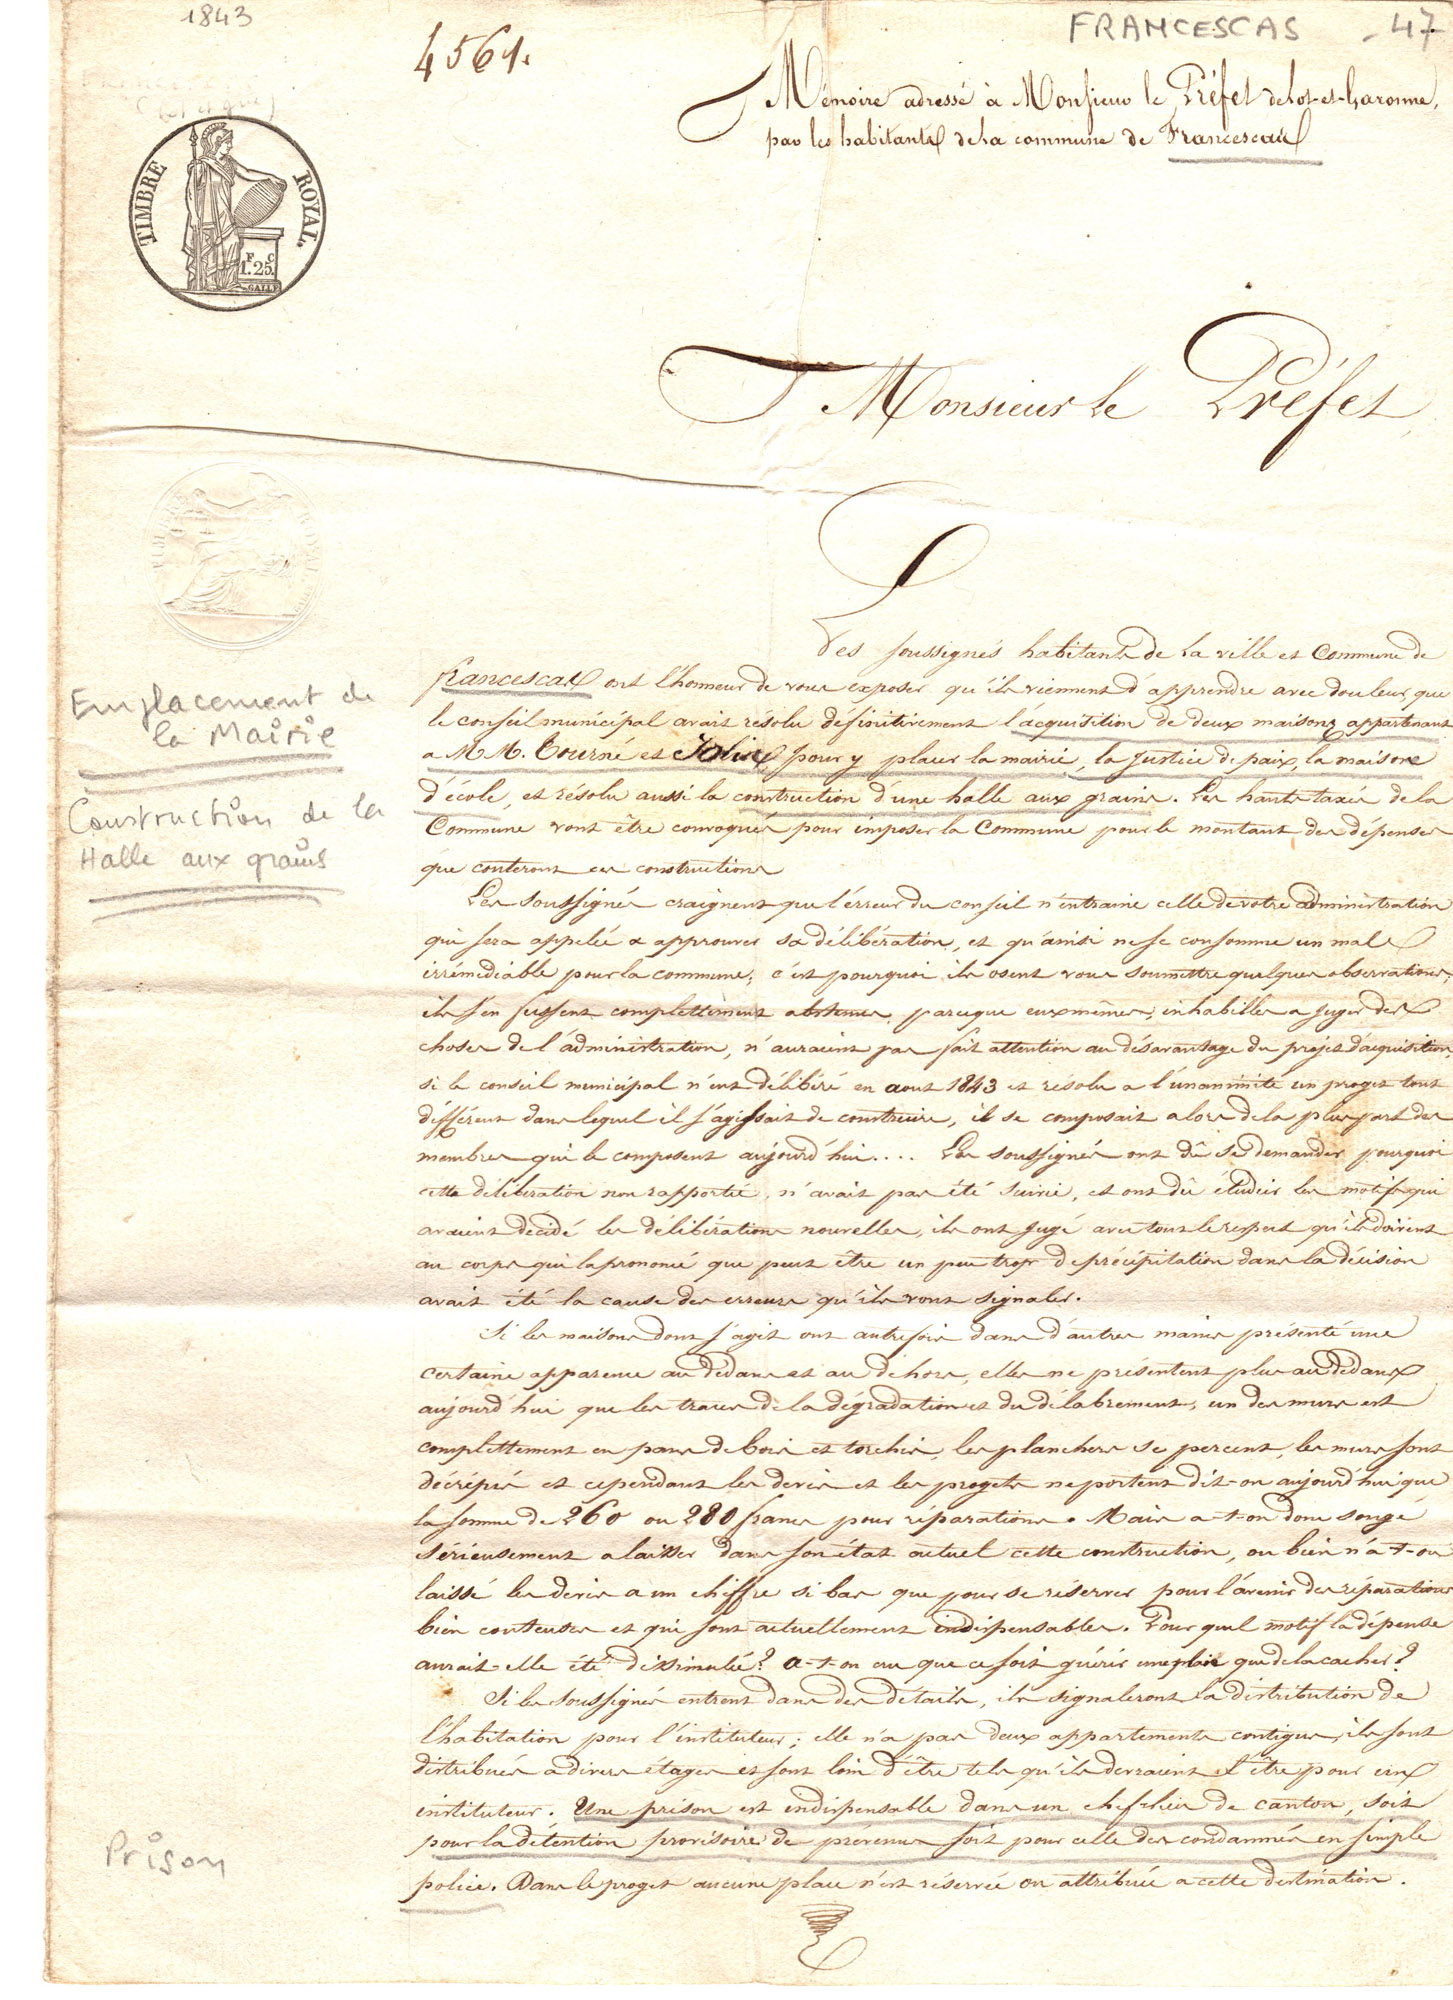 1843
FRANCESCAS - 47
4561.
Mémoire adressé à Monsieur le Préfet de Lot-et-Garonne,
par les habitants de la commune de Francescas
TIMBRE ROYAL.
F C
1.25.
Monsieur le Préfet,
Les soussignés habitants de la ville et Commune de
francescas ont l'honneur de vous exposer qu'ils viennent d'apprendre avec douleur que
le conseil municipal avait résolu définitivement l'acquisition de deux maisons appartenant
a M M. Tourné et Jolis, pour y placer la mairie, la justice de paix, la maison
d'école, et résolu aussi la construction d'une halle aux grains. Les hauts taxés de la
Commune vont être convoqués pour imposer la Commune pour le montant des dépenses
que couteront ces constructions
Emplacement de
la Mairie
Construction de la
Halle aux grains
Les soussignés craignent que l'érreur du conseil n'entraine celle de votre administration
qui sera appelée a approuver sa délibération, et qu'ainsi ne se consomme un mal
irrémédiable pour la commune; c'est pourquoi ils osent vous soumettre quelques observations,
ils s'en fussent complettement abstenus, parceque eux mêmes, inhabilles a juger des
choses de l'administration, n'auraient pas fait attention au désavantage du projet d'acquisition,
si le conseil municipal n'eut délibéré en aout 1843 et résolu a l'unanimité un proget tout
différent dans lequel il s'agissait de construire, il se composait alors de la plus part des
membres qui le composent aujourd'hui.... Les soussignés ont dû se demander pourquoi
cette délibération non rapportée, n'avait pas été suivie, et ont dû etudier les motifs qui
avaient decidé les délibérations nouvelles, ils ont jugé avec tout le respect qu'ils doivent
au corps qui la prononcé que peut être un peu trop de précipitation dans la décision
avait été la cause des erreurs qu'ils vont signaler.
Si les maisons dont s'agit ont autrefois dans d'autres mains présenté une
certaine apparence au dedans et au dehors, elles ne présentent plus au dedans
aujourd'hui que les traces de la dégradation et du délabrement, un des murs est
complettement en pans de bois et torchis, les planchers se percent, les murs sont
décrépis et cependant les devis et les progets ne portent dit-on aujourd'hui que
la somme de 260 ou 280 francs pour réparations. Mais a-t-on donc songé
sérieusement a laisser dans son état actuel cette construction, ou bien n'a-t-on
laissé les devis a un chiffre si bas que pour se réserver pour l'avenir des réparations
bien conteuses et qui sont actuellement indispensables. Pour quel motif la dépense
aurait-elle été dissimulée? a-t-on cru que ce soit guérir une plaie que de la cacher?
Si les soussignés entrent dans des détails, ils signaleront la distribution de
l'habitation pour l'instituteur; elle n'a pas deux appartements contigus, ils sont
distribués a divers étages et sont loin d'être tels qu'ils devraient l'être pour un
instituteur. Une prison est indispensable dans un chef lieu de canton, soit
pour la détention provisoire de prévenus soit pour celle des condamnés en simple
police. Dans le proget aucune place n'est réservée ou attribuée a cette destination.
Prison